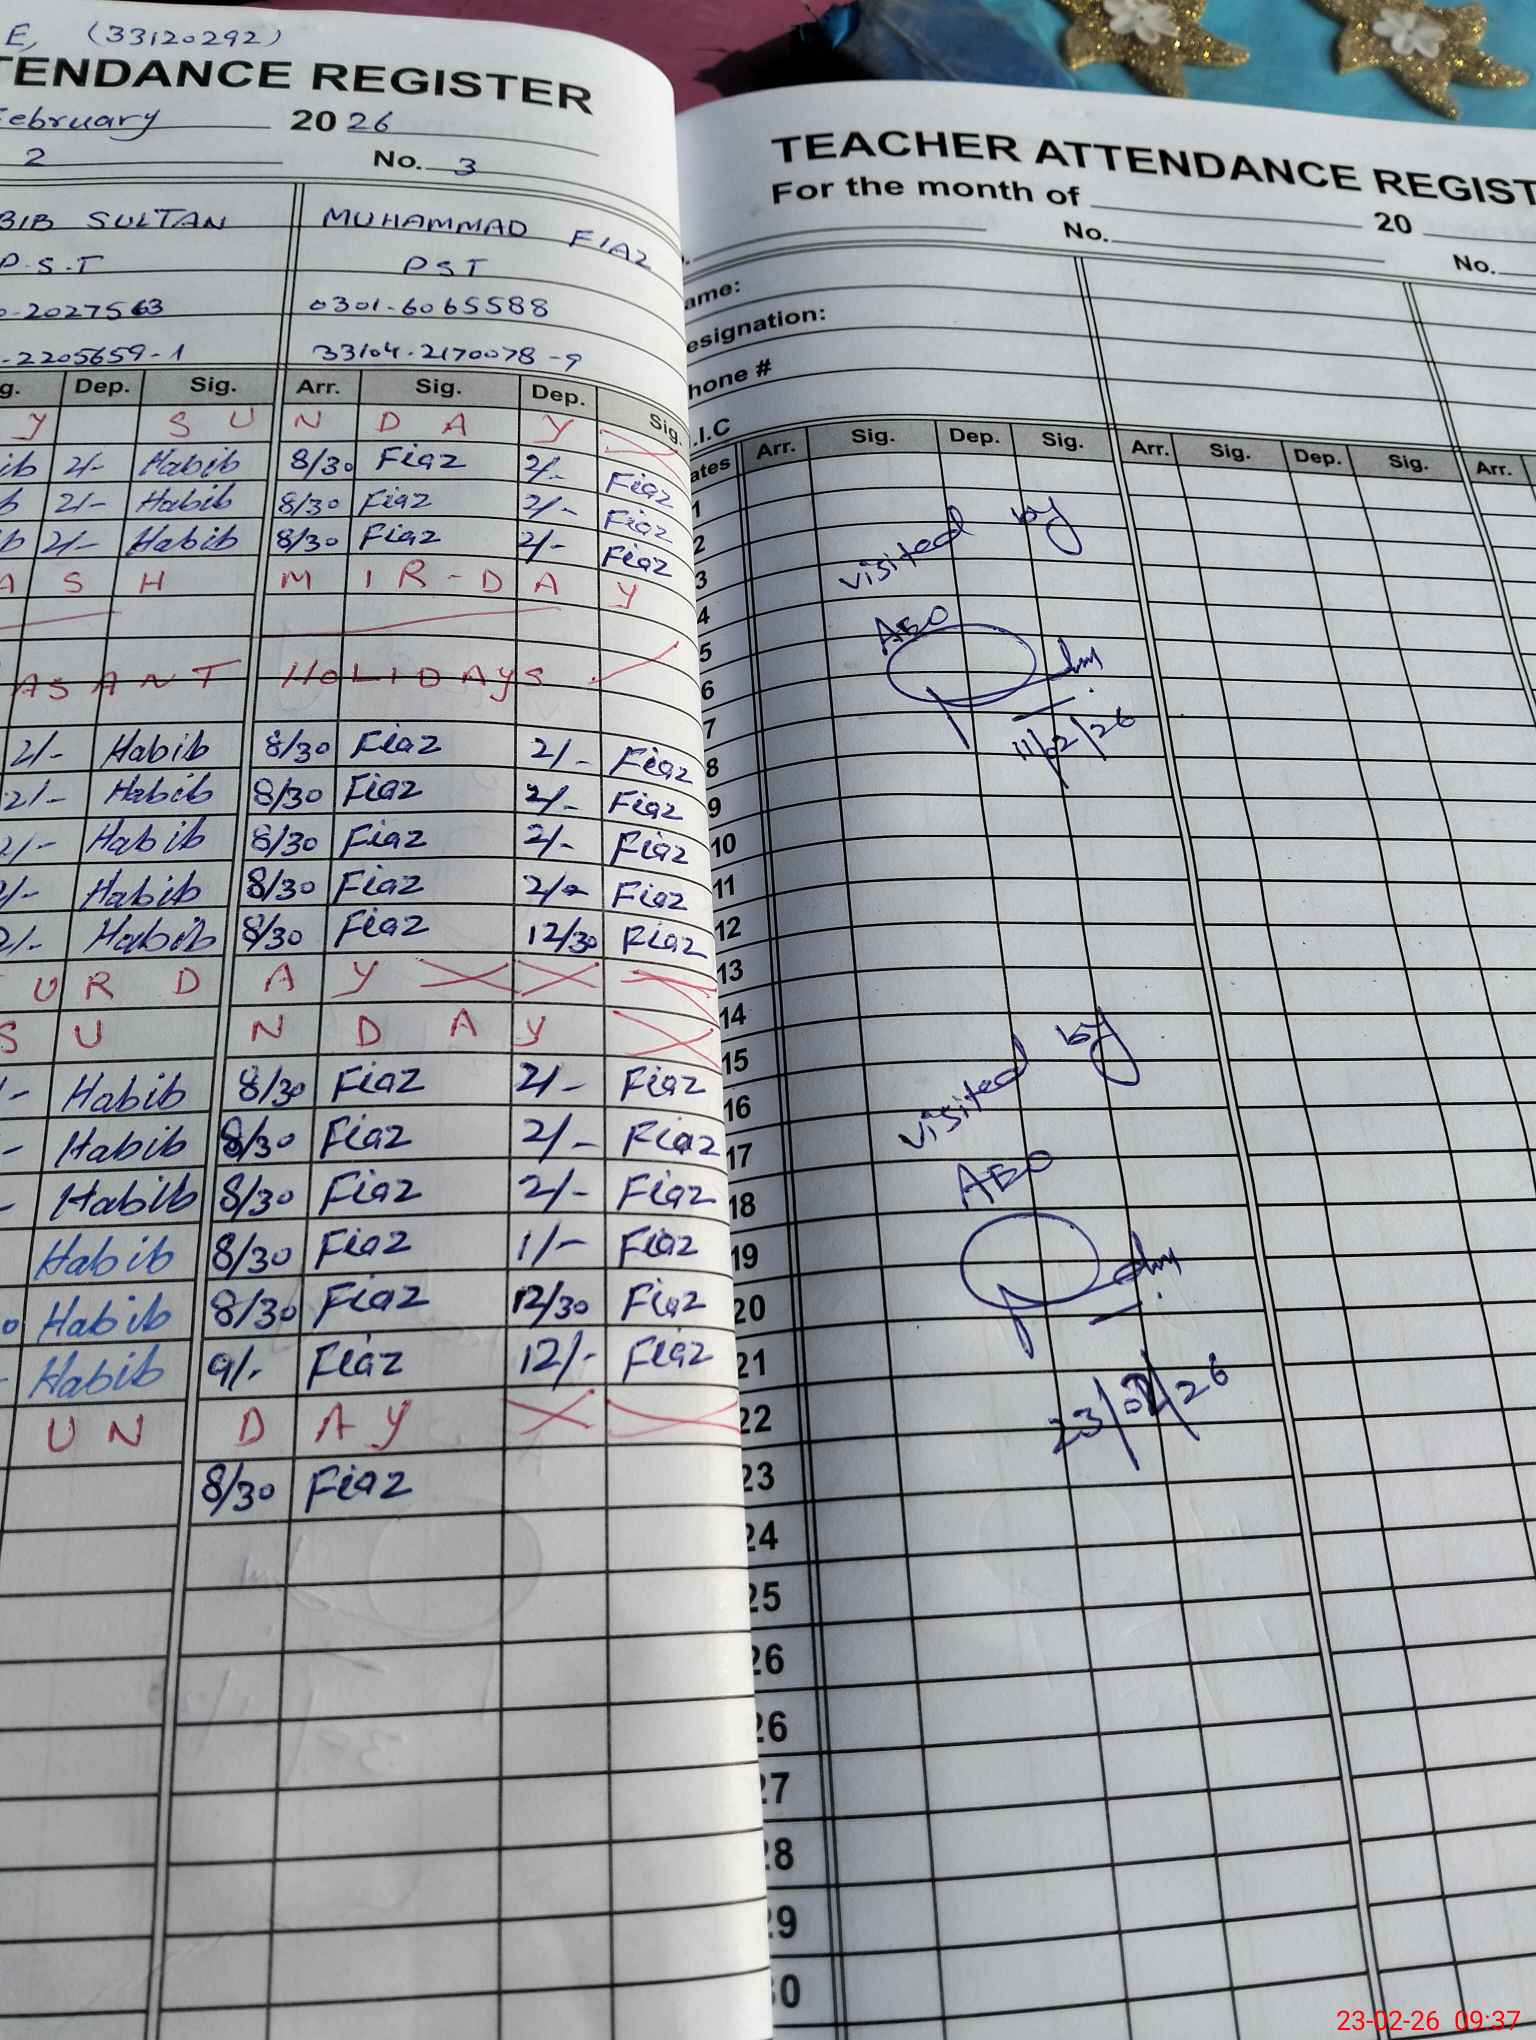 E, (33120292)
TENDANCE REGISTER
February 2026
2 No. 3
BIB SULTAN MUHAMMAD FIAZ
P.S.T PST
0-2027563 0301-6065588
-2205659-1 33104-2170078-9
g. Dep. Sig. Arr. Sig. Dep. Sig.
Y S U N D A Y
ib 2/- Habib 8/30 Fiaz 2/- Fiaz
b 2/- Habib 8/30 Fiaz 2/- Fiaz
b 2/- Habib 8/30 Fiaz 2/- Fiaz
A S H M I R - D A Y
ASANT HOLIDAYS
2/- Habib 8/30 Fiaz 2/- Fiaz
2/- Habib 8/30 Fiaz 2/- Fiaz
2/- Habib 8/30 Fiaz 2/- Fiaz
2/- Habib 8/30 Fiaz 2/- Fiaz
2/- Habib 8/30 Fiaz 12/30 Fiaz
U R D A Y
S U N D A Y
- Habib 8/30 Fiaz 2/- Fiaz
- Habib 8/30 Fiaz 2/- Fiaz
- Habib 8/30 Fiaz 2/- Fiaz
Habib 8/30 Fiaz 1/- Fiaz
0 Habib 8/30 Fiaz 12/30 Fiaz
- Habib 9/- Fiaz 12/- Fiaz
U N D A Y
8/30 Fiaz
TEACHER ATTENDANCE REGIST
For the month of 20
No. No.
ame:
esignation:
hone #
.I.C
ates Arr. Sig. Dep. Sig. Arr. Sig. Dep. Sig. Arr.
1
2
3
4
5
6
7
8
9
10
11
12
13
14
15
16
17
18
19
20
21
22
23
24
25
26
26
27
28
29
30
visited by
AEO
11/02/26
visited by
AEO
23/02/26
23-02-26 09:37